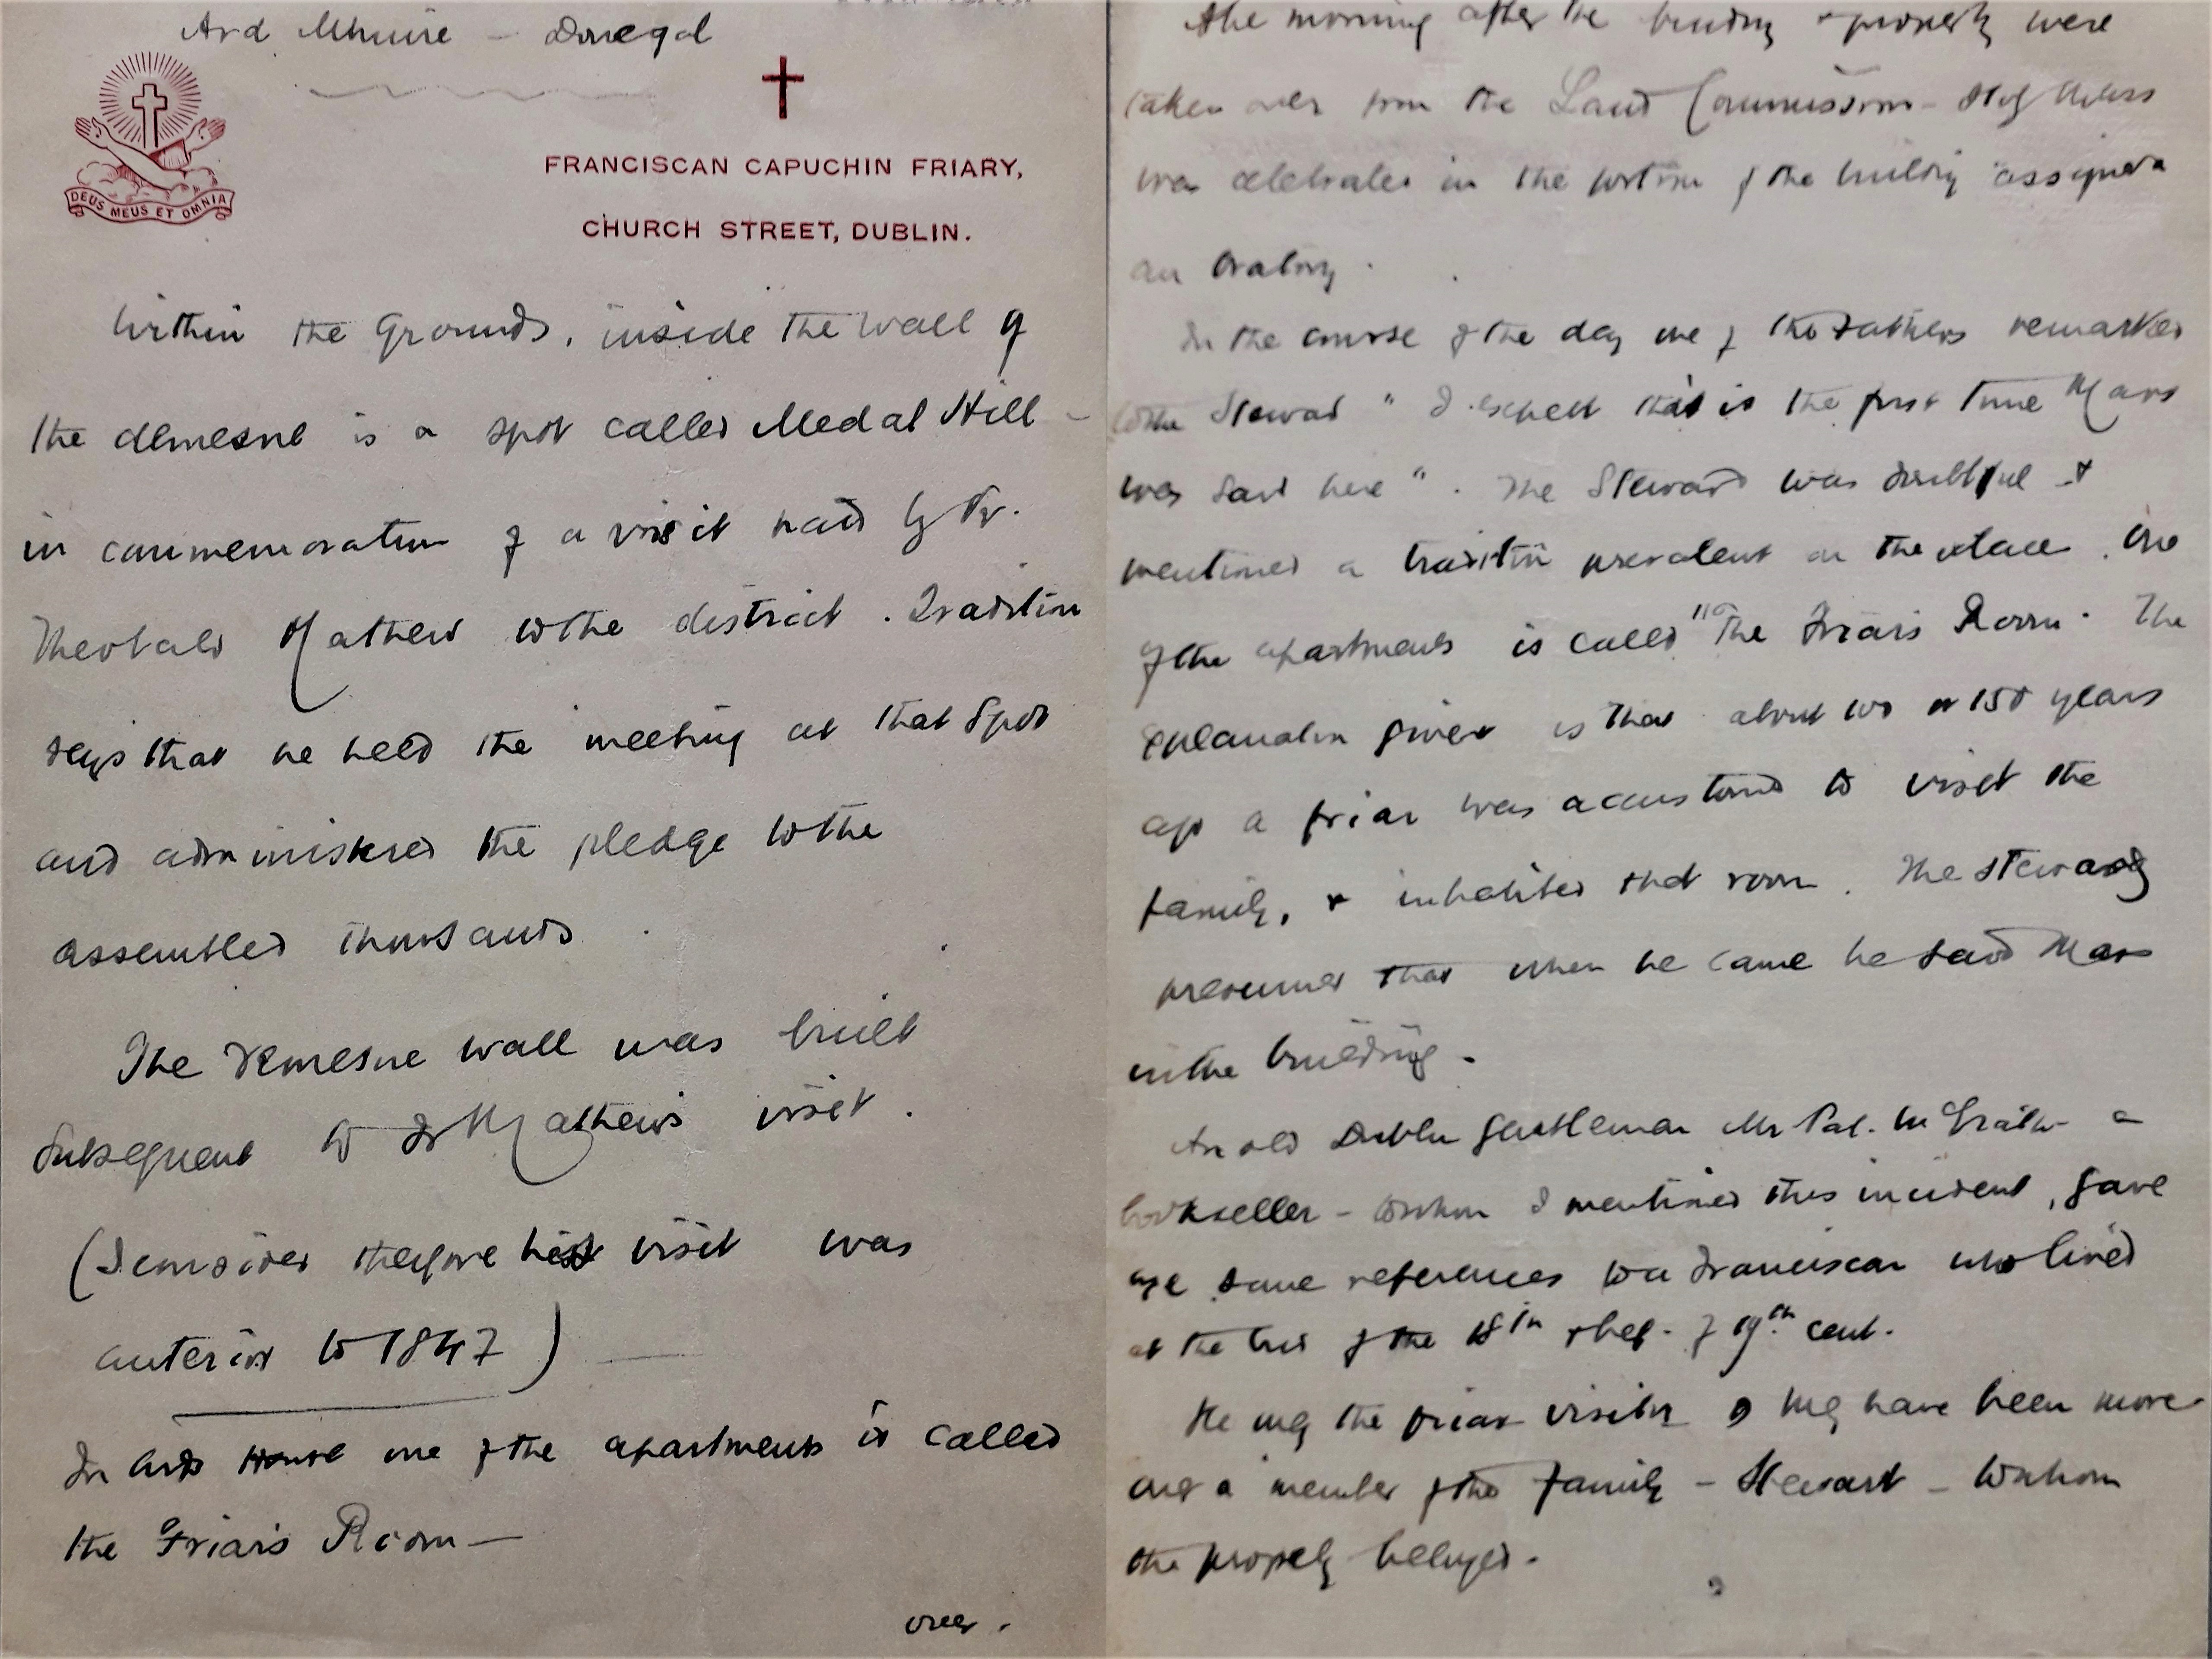 Ard Mhuire - Donegal
DEUS MEUS ET OMNIA
FRANCISCAN CAPUCHIN FRIARY,
CHURCH STREET, DUBLIN.
Within the Grounds, inside the wall of
the demesne is a spot called Medal Hill -
in commemoration of a visit paid by Fr.
Theobald Mathew to the district. Tradition
says that he held the meeting at that spot
and administered the pledge to the
assembled thousands.
The demesne wall was built
subsequent to Fr Mathew's visit.
(I consider therefore his visit was
anterior to 1847)
In Ards House one of the apartments is called
the Friar's Room—
over.
The morning after the building & property were
taken over from the Land Commission - Holy Mass
was celebrated in the portion of the building assigned a
an Oratory.
In the course of the day one of the Fathers remarked
to the Steward "I expect that is the first time Mass
was said here". The Steward was doubtful &
mentioned a tradition prevalent in the place. One
of the apartments is called "The Friar's Room. The
explanation given is that about 100 or 150 years
ago a friar was accustomed to visit the
family, & inhabited that room. The steward
presumes that when he came he said Mass
in the building.
An old Dublin gentleman Mr Pat. McGrath a
bookseller - to whom I mentioned this incident, gave
me some references to a Franciscan who lived
at the end of the 18th & beg. of 19th cent.
He may the friar visitor & may have been more-
over a member of the family - Stewart - to whom
the property belonged.